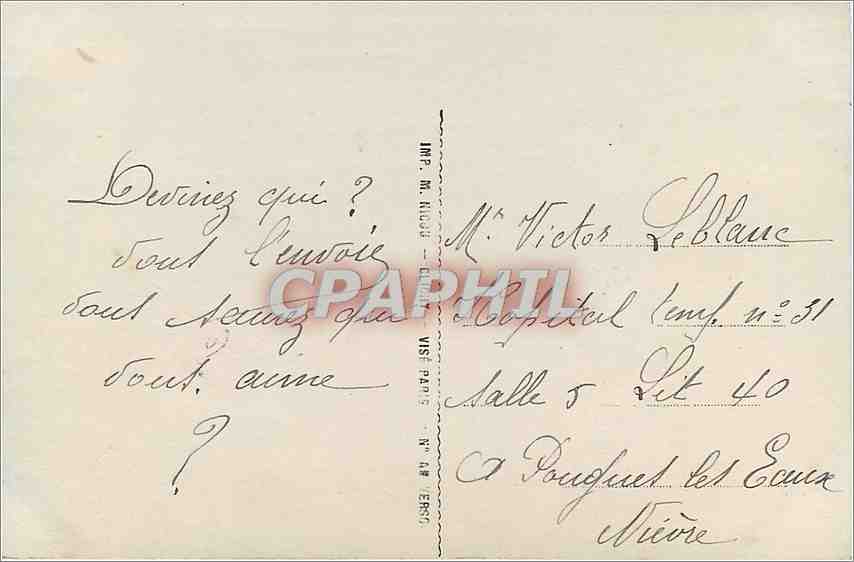 Devinez qui ?
vout l'envoie
vout saurez qui
vout aime
?
IMP. M. NICOU — — VISÉ PARIS - N° AU VERSO
CPAPHIL
Mr Victor Leblanc
Hopital temp. n° 31
salle 5 Lit 40
a Pougues les Eaux
Nièvre